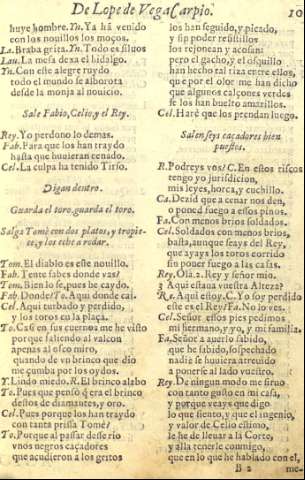 De Lope de Vega Carpio. 10
huye hombre. Yn. Ya hã venido
con los nouillos los moços.
La. Braba grita. Yn. Todo es siluos
Lau. La mesa dexa el hidalgo.
Yn. Con este alegre ruydo
todo el mundo se alborota
desde la monja al nouicio.
Sale Fabio, Celio, y el Rey.
Rey. Yo perdono lo demas.
Fab. Para que los han traydo
hasta que huuieran cenado.
Cel. La culpa ha tenido Tirso.
Digan dentro.
Guarda el toro. guarda el toro.
Salga Tomè con dos platos, y tropie-
ce, y los eche a rodar.
Tom. El diablo es este nouillo.
Fab. Tente sabes donde vas?
Tom. Bien lo se, pues he caydo.
Fab. Donde? To. Aqui donde cai.
Cel. Aqui turbado y perdido,
y los toros en la plaça.
To. Casi en sus cuernos me he visto
porque saliendo al valcon
apenas al osso miro,
quando de vn brinco que dio
me çumba por los oydos.
T. Lindo miedo. R. El brinco alabo
To. Pues que pensò q̃ era el brinco
destos de diamantes, y oro.
Cel. Pues porque los han traydo
con tanta prissa Tomè?
To. Porque al passar desse rio
vnos negros caçadores
que acudieron a los gritos
los han seguido, y picado,
y sin poder resistillos
los rejonean y acosan:
pero el gacho, y el osquillo
han hecho tal riza entre ellos,
que por el olor me han dicho
que algunos calçones verdes
se los han buelto amarillos.
Cel. Harè que los prendan luego.
Salen seys caçadores bien
puestos.
R. Podreys vos? C. En estos riscos
tengo yo jurisdicion,
mis leyes, horca, y cuchillo.
Ca. Dezid que a cenar nos den,
o poned fuego a essos pinos.
Fa. Con menos brios soldados.
Cel. Soldados con menos brios,
basta, aunque seays del Rey,
que ayays los toros corrido
sin poner fuego a las casas.
Rey. Ola. 2. Rey y señor mio.
3 Aqui estaua vuestra Alteza?
Re. Aqui estoy. C. Yo soy perdido
este es el Rey? Fa. No lo ves.
Cel. Señor essos pies pedimos
mi hermano, y yo, y mi familia.
Fa. Señor a auerlo sabido,
que he sabido, sospechado
nadie se huuiera atreuido
a ponerse al lado vuestro.
Rey. De ningun modo me siruo
con tanto gusto en mi casa,
y porque veays que digo
lo que siento, y que el ingenio,
y valor de Celio estimo,
le he de lleuar a la Corte,
y alla tenerle conmigo,
que en lo que he hablado con el,
B 2 me-